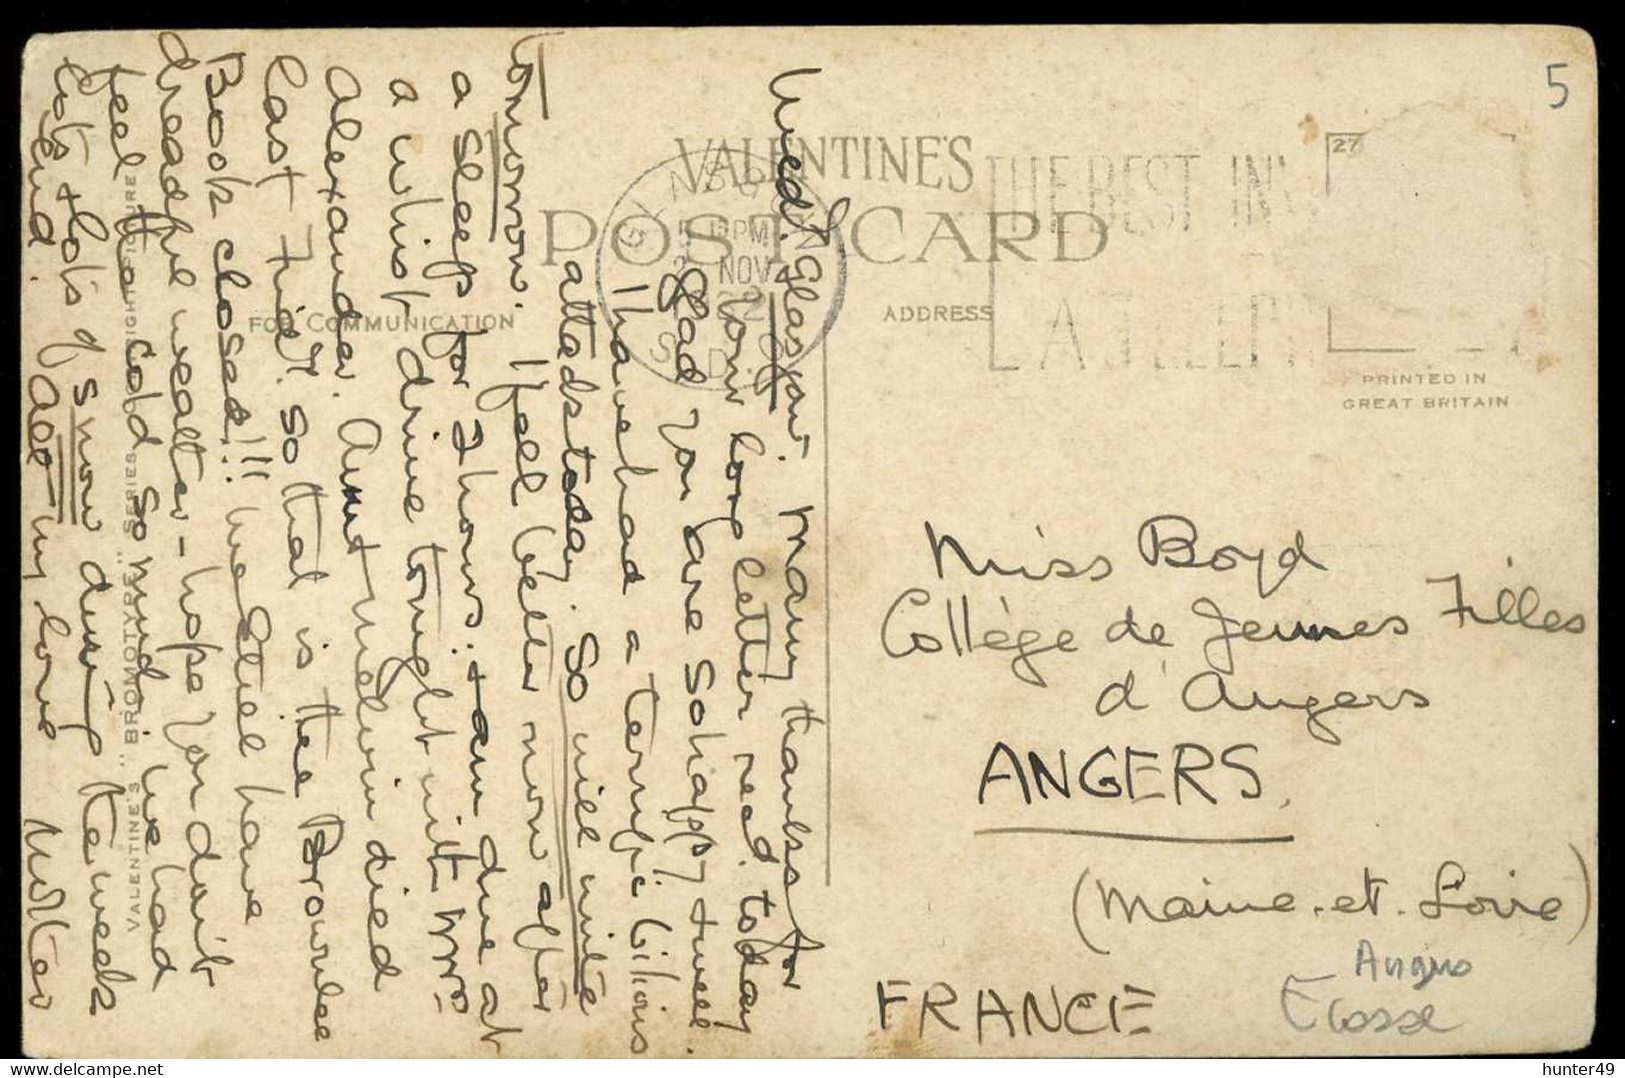 Wed. Glasgow. Many thanks for
your long letter recd. today
Glad you are so happy & well.
I have had a terrific bilious
attack today. So will write
tomorrow. I feel better now after
a sleep for 2 hours. & am due at
a whist drive tonight with Mrs
Alexander. Aunt Melvin died
last Friday. So that is the Brownlee
Book closed!!! We still have
dreadful weather - hope you don't
feel the cold so much. We had
lots & lots of snow during the week
end. All my love Mother
VALENTINE'S
POST CARD
FOR COMMUNICATION
ADDRESS
THE BEST IN
PM
NOV
27
PRINTED IN
GREAT BRITAIN
VALENTINE'S "BROMOTYPE" SERIES
5
Miss Boyd
Collège de Jeunes Filles
d'Angers
ANGERS.
(Maine-et-Loire)
FRANCE
Angers
Ecosse
hunter49